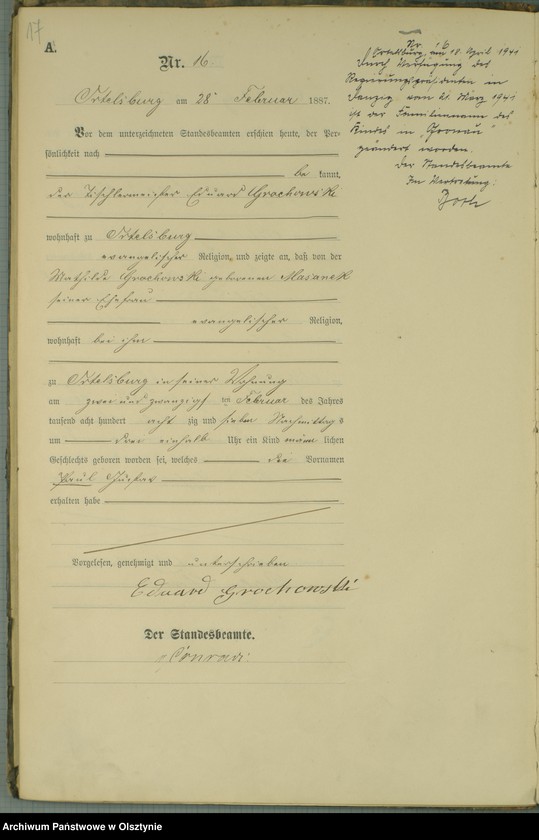 17
A.
Nr. 16.
Ortelsburg am 28 Februar 1887.
Vor dem unterzeichneten Standesbeamten erschien heute, der Per-
sönlichkeit nach
be kannt,
der Tischlermeister Eduard Grochowski
wohnhaft zu Ortelsburg
evangelischer Religion, und zeigte an, daß von der
Mathilde Grochowski geborenen Masanek
seiner Ehefrau
evangelischer Religion,
wohnhaft bei ihm
zu Ortelsburg in seiner Wohnung
am zwei und zwanzigsten Februar des Jahres
tausend acht hundert acht zig und sieben Nachmittags
um drei einhalb Uhr ein Kind männlichen
Geschlechts geboren worden sei, welches die Vornamen
Paul Gustav
erhalten habe
Vorgelesen, genehmigt und unterschrieben
Eduard Grochowski
Der Standesbeamte.
Conradi
Nr. 16
Ortelsburg, am 18. April 1941
Durch Verfügung des
Regierungspräsidenten in
Danzig vom 21. März 1941
ist der Familienname des
Kindes in „Gronau“
geändert worden.
Der Standesbeamte
In Vertretung.
Archiwum Państwowe w Olsztynie